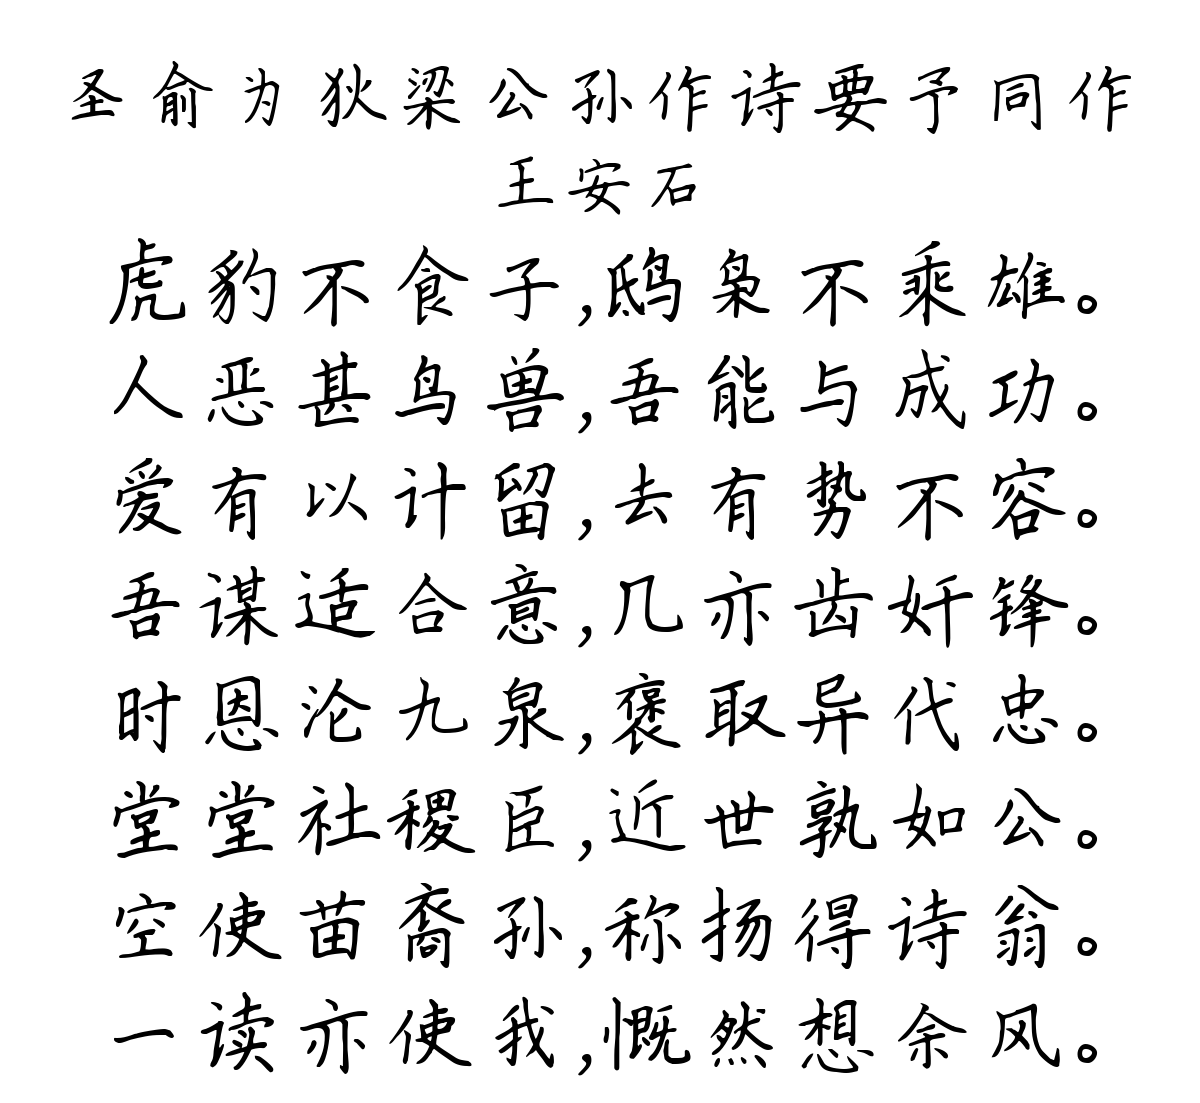 圣俞为狄梁公孙作诗要予同作
王安石
虎豹不食子,鸱枭不乘雄。
人恶甚鸟兽,吾能与成功。
爱有以计留,去有势不容。
吾谋适合意,几亦齿奸锋。
时恩沦九泉,褒取异代忠。
堂堂社稷臣,近世孰如公。
空使苗裔孙,称扬得诗翁。
一读亦使我,慨然想余风。